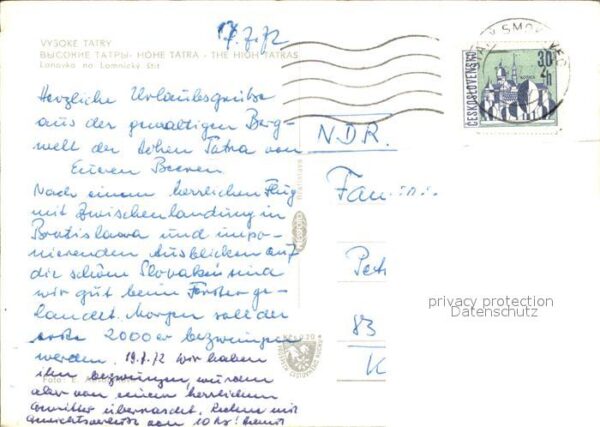 17.7.72
VYSOKÉ TATRY
ВЫСОКИЕ ТАТРЫ - HOHE TATRA - THE HIGH TATRAS
Lanovka na Lomnický štít
Herzliche Urlaubsgrüße
aus der gewaltigen Berg-
welt der Hohen Tatra von
Euren
Nach einem herrlichen Flug
mit Zwischenlandung in
Bratislawa und impo-
nierenden Ausblicken auf
die schöne Slovakei sind
wir gut beim Förster ge-
landet. Morgen soll der
erste 2000er bezwungen
werden. 19.7.72 Wir haben
ihn bezwungen, wurden
aber von einem herrlichen
Gewitter überrascht. Rechne mit
Gewichtsverlust von 10 kg!
Foto: E.
NDR.
Fam
Pet
83
K
ČESKOSLOVENSKO
30 h
SMOKOVEC
privacy protection
Datenschutz